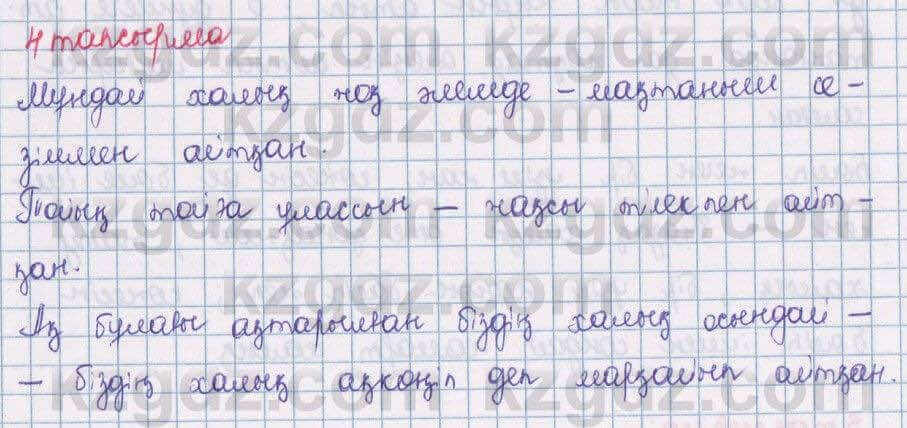 4 тапсырма
Мұндай халық жоқ жемде – мақтаныш се-
зіммен айтқан.
Тойың тойға ұлассын – жақсы тілекпен айт-
қан.
Ақ бұлағы ақтарылған біздің халық осындай –
– біздің халық ақкөңіл деп марқайып айтқан.
kzgdz.com